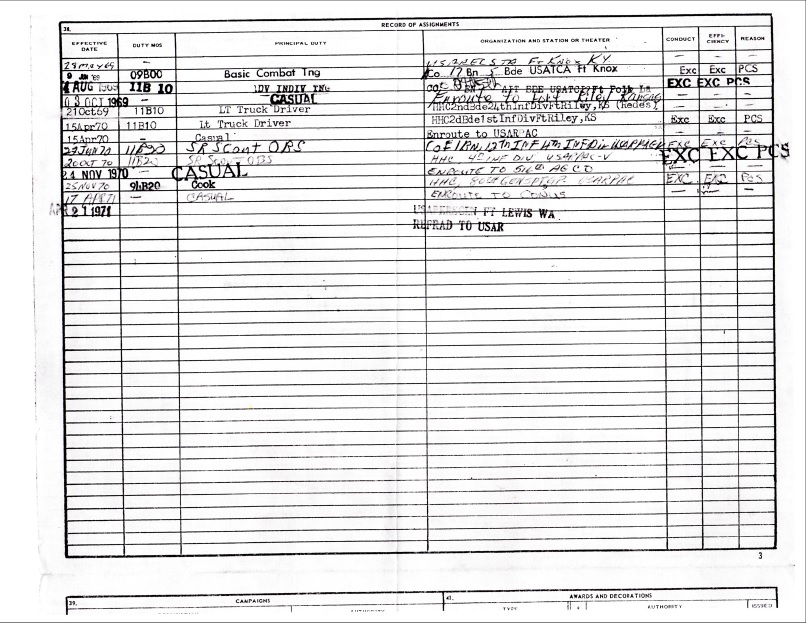 38. RECORD OF ASSIGNMENTS
EFFECTIVE DATE DUTY MOS PRINCIPAL DUTY ORGANIZATION AND STATION OR THEATER CONDUCT EFFI- CIENCY REASON
28 May 69 — Ft Knox KY — — —
9 JUN 69 09B00 Basic Combat Tng Co 17 Bn 5 Bde USATCA Ft Knox Exc Exc PCS
AUG 1969 11B 10 ADV INDIV TNG AIT BDE Ft Polk La EXC EXC PCS
03 OCT 1969 — CASUAL Enroute to Fort Riley Kansas — — —
21Oct69 11B10 LT Truck Driver HHC2ndBde24thInfDivFtRiley,KS (Redes)
15Apr70 11B10 Lt Truck Driver HHC2dBde1stInfDivFtRiley,KS Exc Exc PCS
15Apr70 — Casual Enroute to USARPAC — — —
11B20 SR Scout OBS 12th INF 4th INF Div USARPAC Exc Exc PCS
20 Oct 70 11B20 SR Scout OBS HHC 4th INF DIV USARPAC-V EXC EXC PCS
24 NOV 1970 — CASUAL ENROUTE TO AG CO — — —
25 Nov 70 94B20 Cook HHC, USARPAC EXC EXC PCS
17 APR 71 — CASUAL ENROUTE TO CONUS — — —
APR 21 1971 FT LEWIS WA
REFRAD TO USAR
3
39. CAMPAIGNS 41. AWARDS AND DECORATIONS
AUTHORITY TYPE AUTHORITY ISSUED